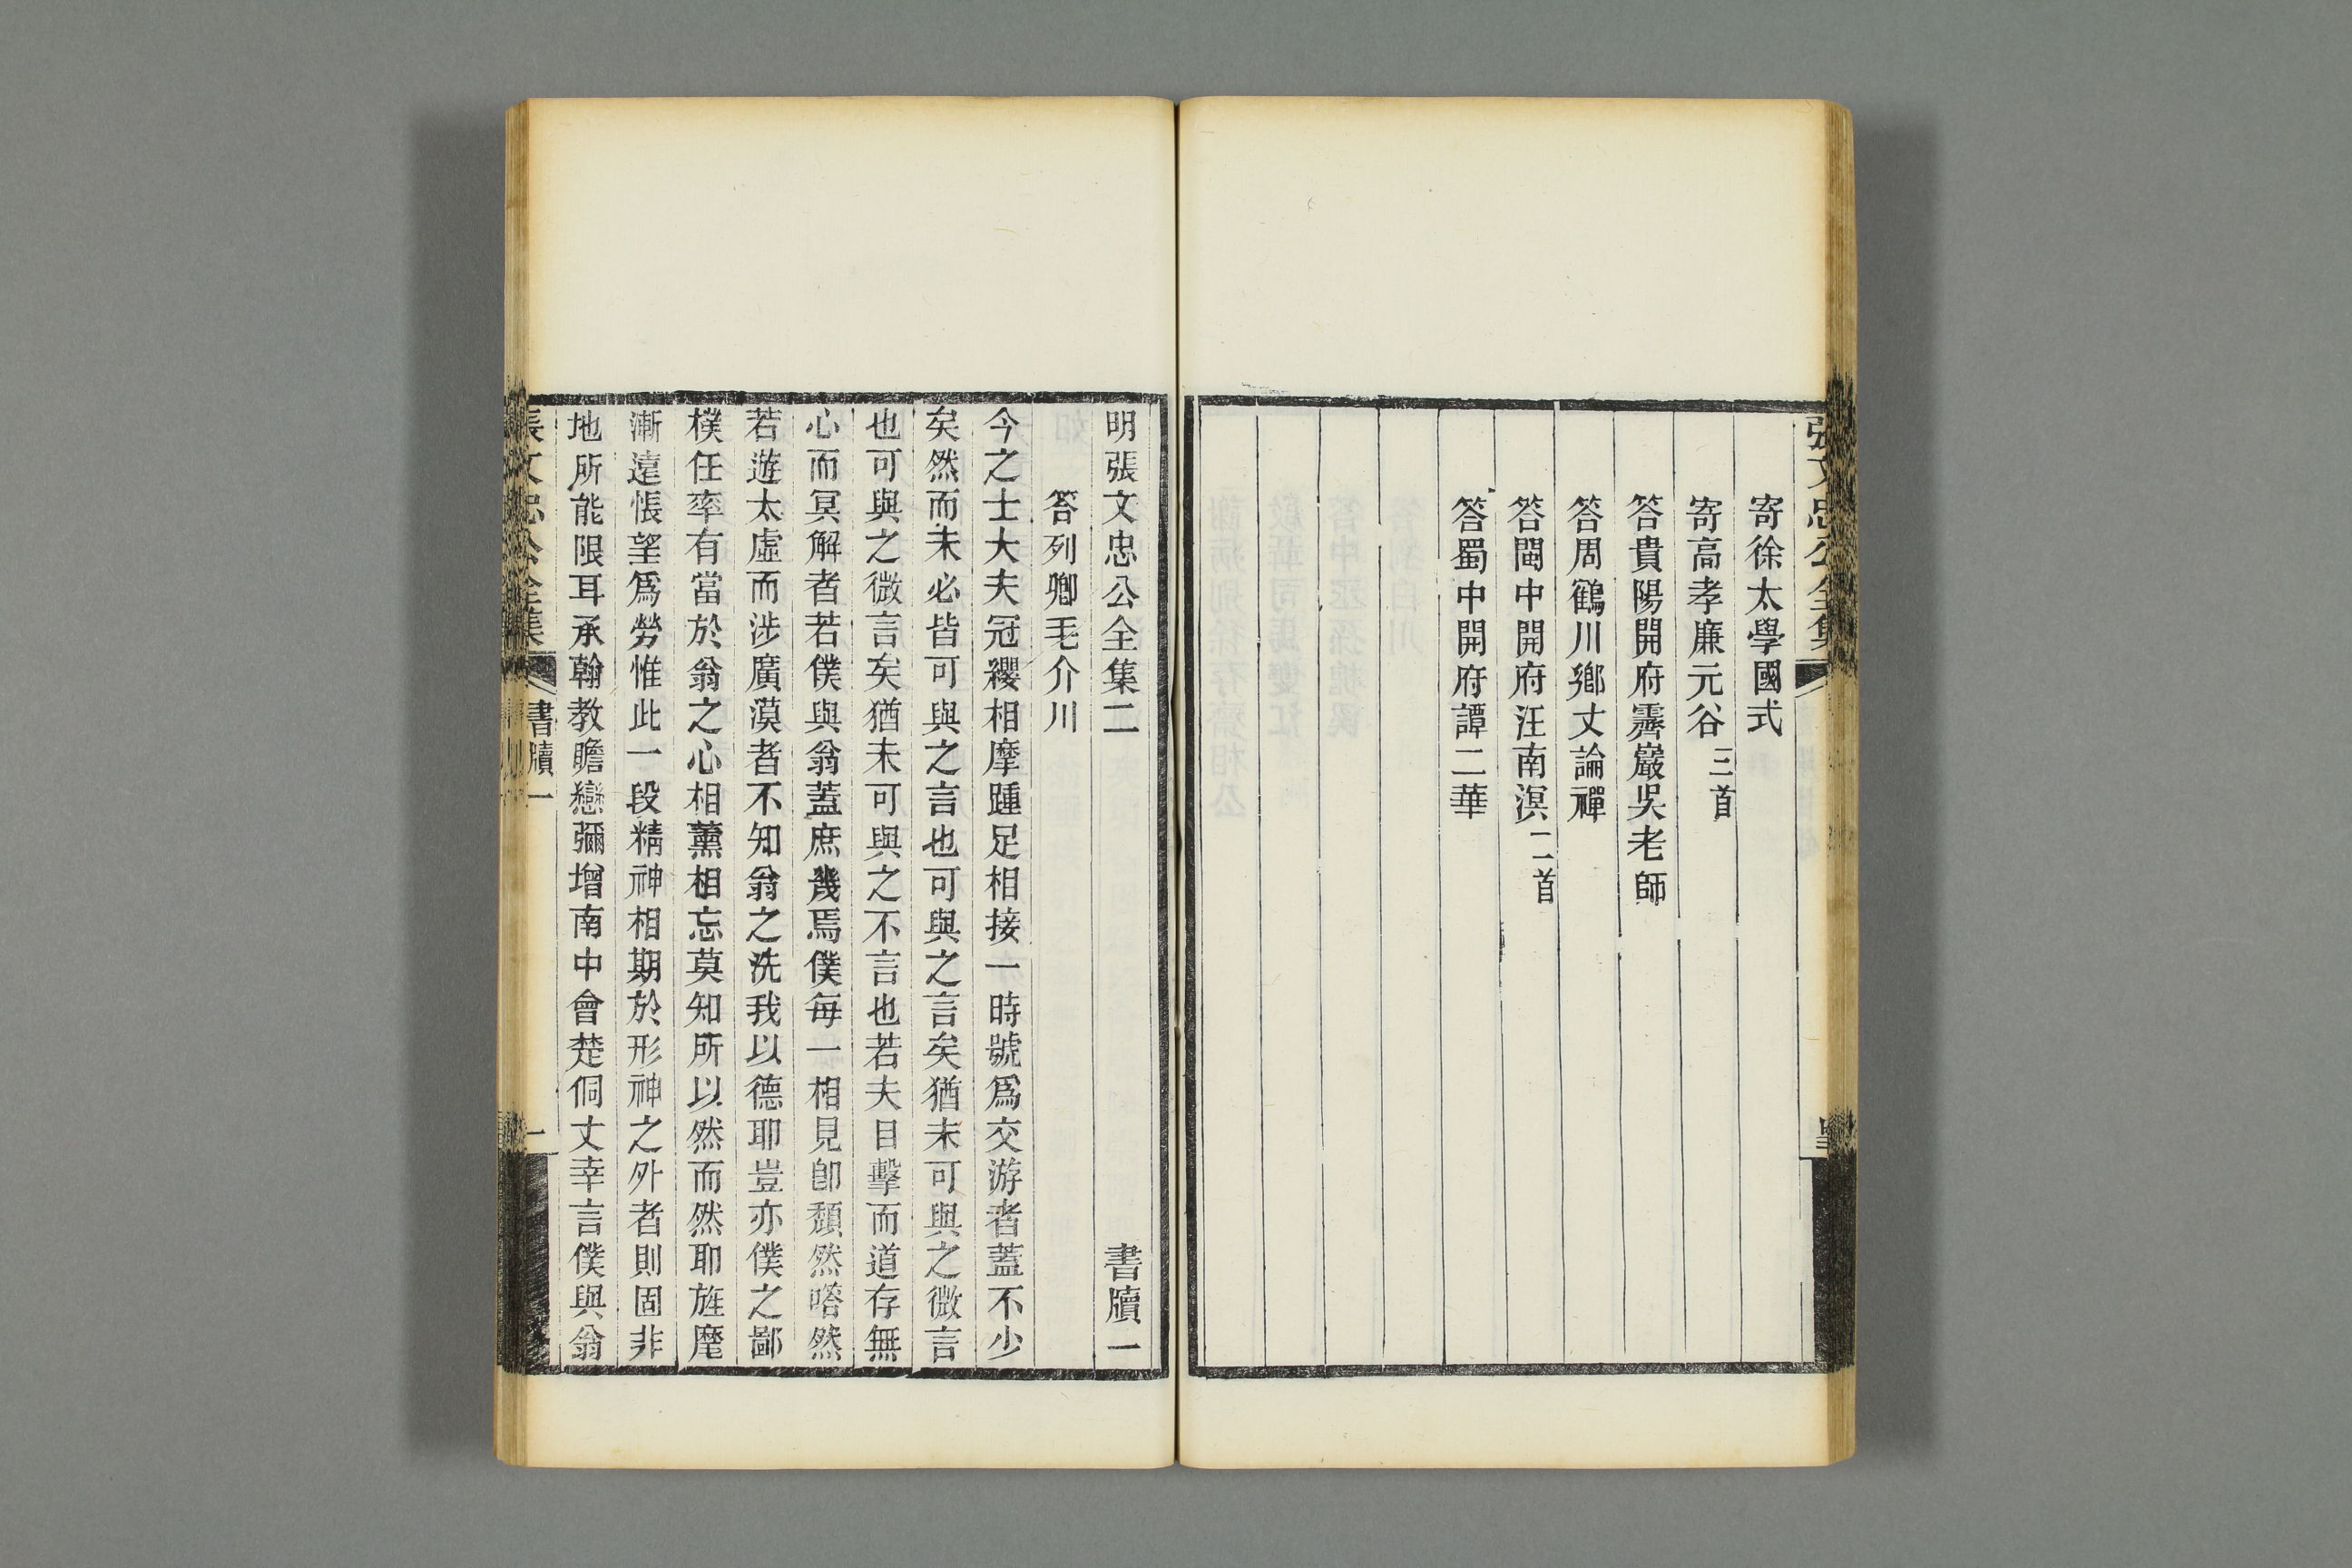 張文忠公全集
寄徐太學國式
寄高孝廉元谷 三首
答貴陽開府霽巖吳老師
答周鶴川鄉丈論禪
答閩中開府汪南溟 二首
答蜀中開府譚二華
明張文忠公全集二 書牘一
答列卿毛介川
今之士大夫冠纓相摩踵足相接一時號爲交游者蓋不少
矣然而未必皆可與之言也可與之言矣猶未可與之微言
也可與之微言矣猶未可與之不言也若夫目擊而道存無
心而冥解者若僕與翁蓋庶幾焉僕每一相見卽頹然嗒然
若遊太虛而涉廣漠者不知翁之洗我以德耶豈亦僕之鄙
樸任率有當於翁之心相薰相忘莫知所以然而然耶旌麾
漸遠悵望爲勞惟此一段精神相期於形神之外者則固非
地所能限耳承翰教瞻戀彌增南中會楚侗丈幸言僕與翁
張文忠公全集 書牘一 一